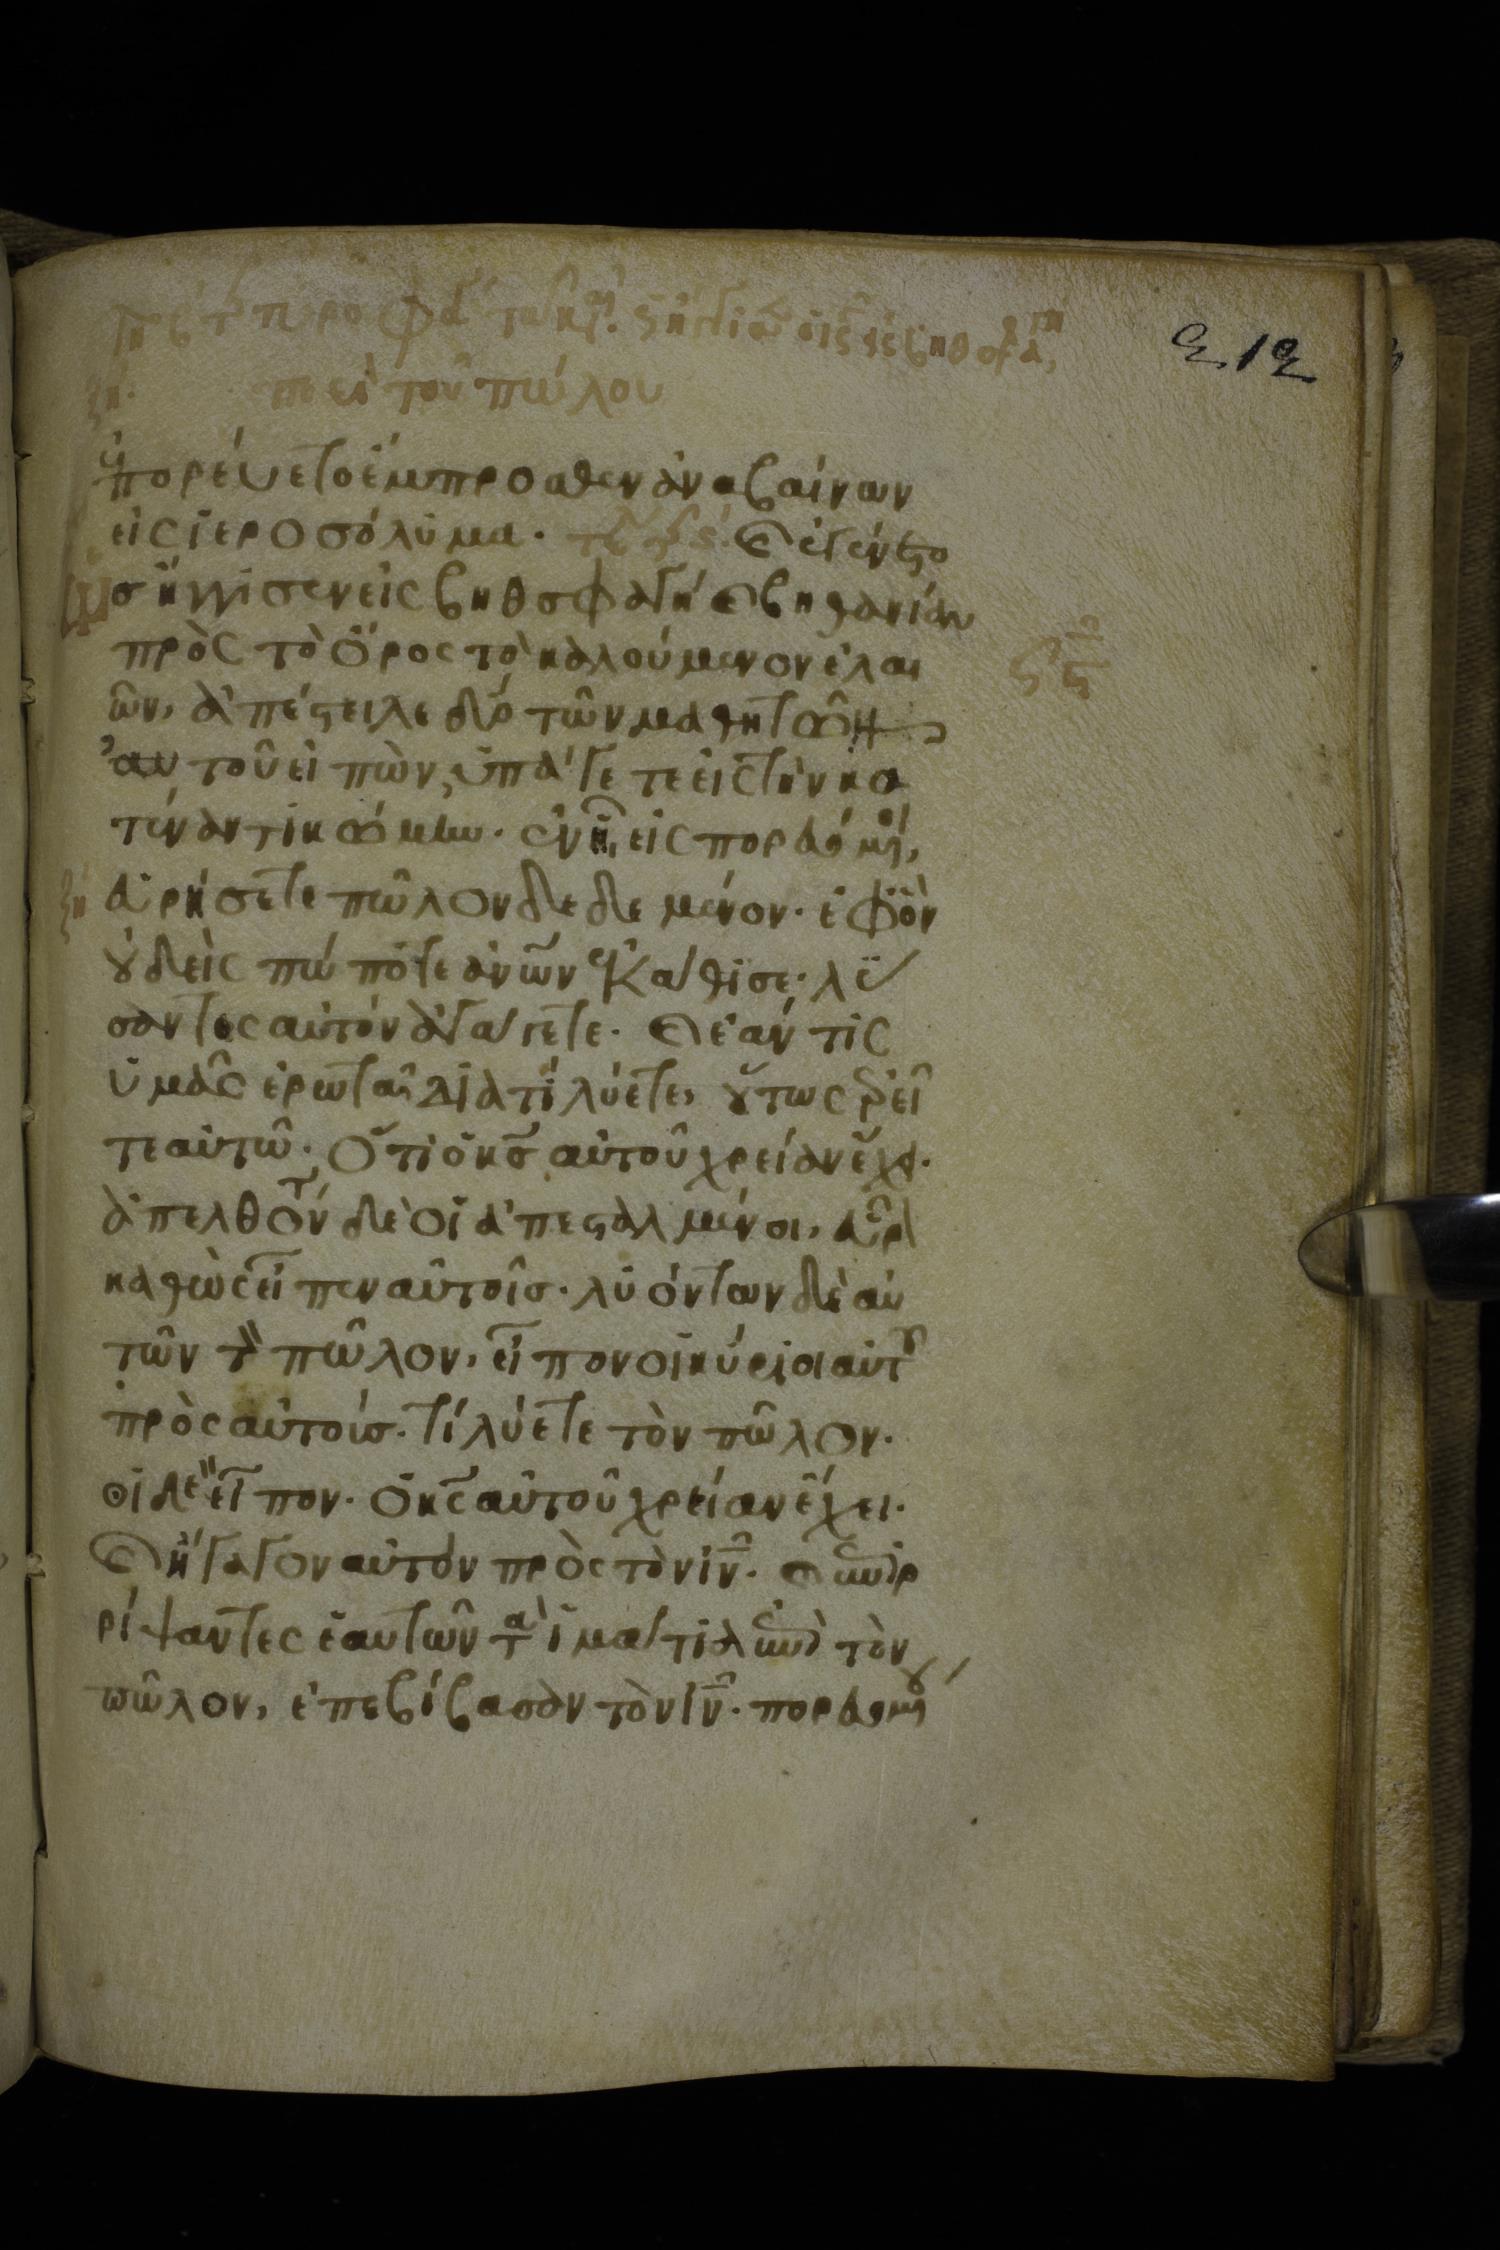 212
ξη. περι του πώλου
ἐπορέυετο ἔμπροσθεν ἀναβαίνων
εἰς ἱεροσόλυμα. καὶ ἐγένετο
ὡσ ἤγγισεν εἰς βηθσφαγὴ καὶ βηθανίαν
πρὸς τὸ ὄρος τὸ καλούμενον ἐλαι
ῶν, ἀπέστειλε δύο τῶν μαθητῶν
αὐτοῦ εἰπὼν, ὑπάγετε εἰς τὴν κα
τέναντι κώμην. ἐν ἧ εἰσπορευόμενοι,
ξη εὑρήσετε πῶλον δεδεμένον. ἐφ ὃν
ὀυδεὶς πώποτε ἀνων ἐκάθισε. λύ
σαντες αὐτὸν ἀγάγετε. καὶ ἐάν τὶς
ὑμᾶς ἐρωτᾶ διατί λύετε, οὕτως ἐρεῖ
τε αὐτῶ. ὅτι ὁ κσ αὐτοῦ χρείαν ἔχει.
ἀπελθόντες δὲ οἱ ἀπεσταλμένοι, εὗρον
καθὼς εἶπεν αὐτοῖσ. λυόντων δὲ αὐ
τῶν τὸν πῶλον, εἶπον οἱ κύριοι αὐτοῦ
πρὸς αὐτούσ. τί λύετε τὸν πῶλον.
οἱ δὲ εἶπον. ὁ κς αὐτοῦ χρείαν ἔχει.
καὶ ἤγαγον αὐτὸν πρὸς τὸν ιν. καὶ ἐπιρ
ρίψαντες ἑαυτῶν τὰ ἱμάτια ἐπὶ τὸν
πῶλον, ἐπεβίβασαν τὸν ιν. πορευομένου